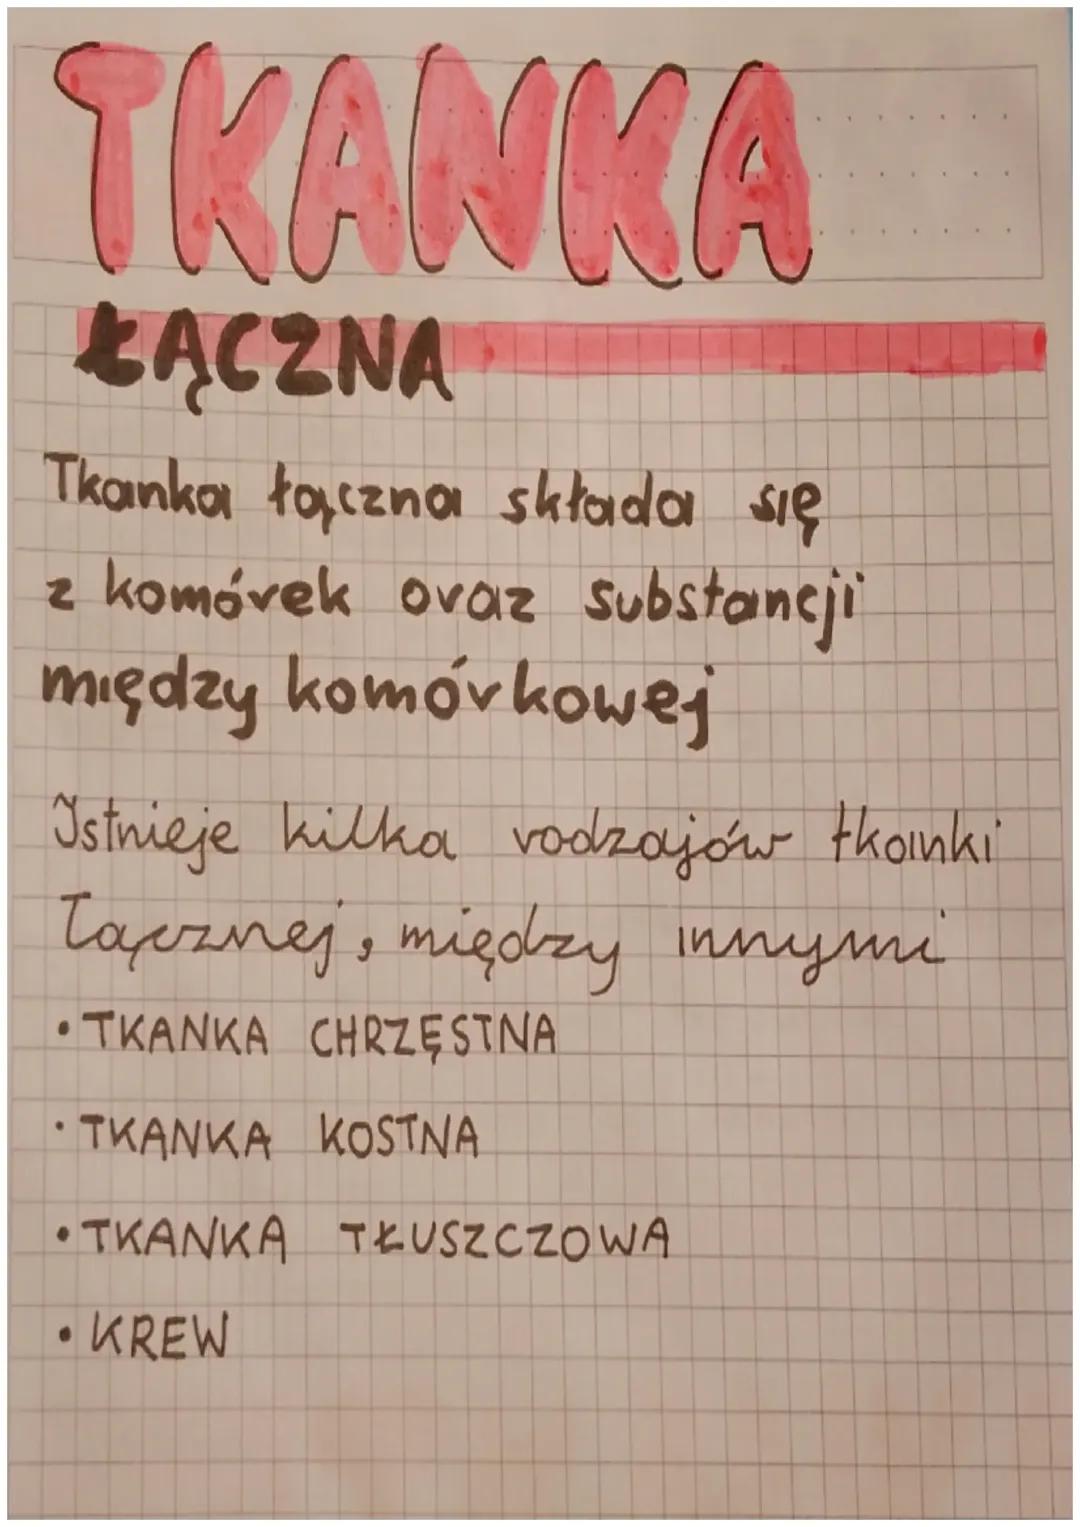 TKANKA
ŁĄCZNA
Tkanka łączna składa się
z komórek oraz substancji
między komórkowej
Istnieje kilka rodzajów tkanki
łącznej, między innymi
• TKANKA CHRZĘSTNA
• TKANKA KOSTNA
• TKANKA TŁUSZCZOWA
• KREW